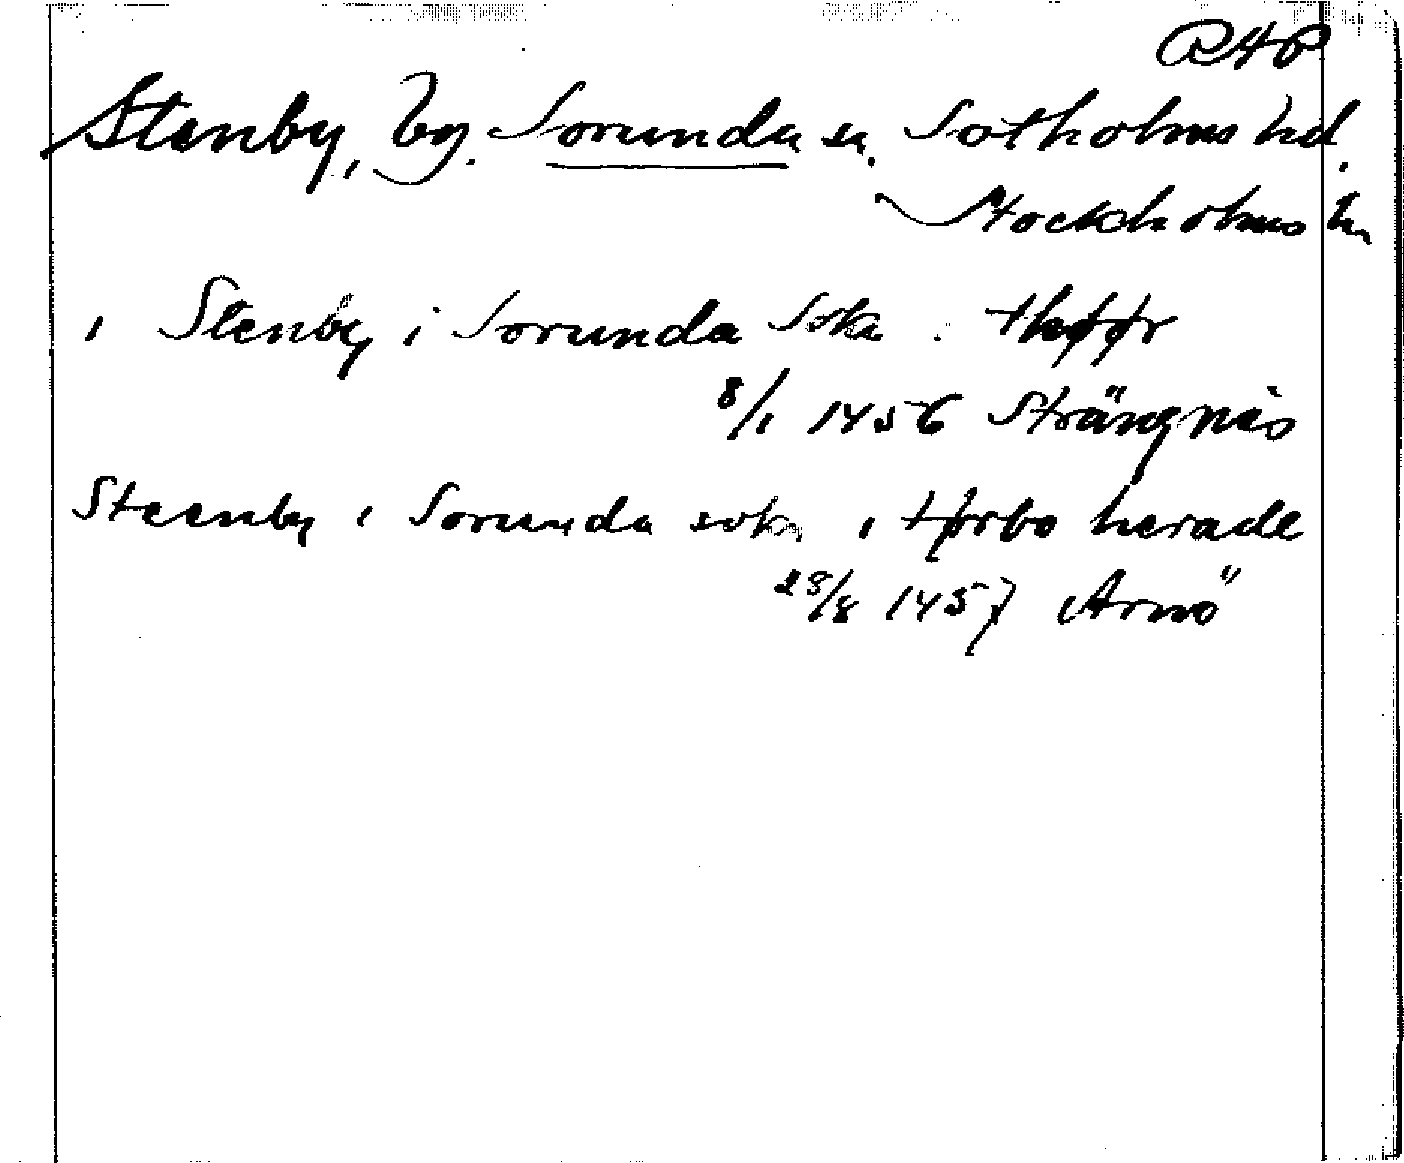 RAP
Stenby, by. Sorunda sn. Sotholms hd.
Stockholms ln
i Stenby i Sorunda Sokn . thøør
8/1 1456 Strängnäs
Steenby i Sorunda sokn i tørbo herade
28/8 1457 Arnö